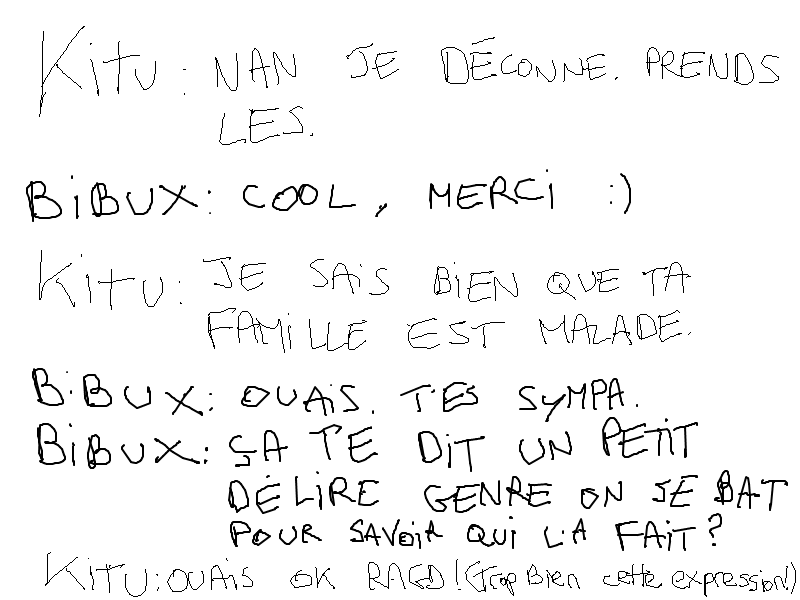 Kitu: NAN JE DÉCONNE. PRENDS
LES.
BiBUX: COOL, MERCi :)
Kitu: JE SAiS BiEN QUE TA
FAMiLLE EST MALADE.
BiBUX: OUAiS. T'ES SYMPA.
BiBUX: ÇA TE DiT UN PETiT
DÉLiRE GENRE ON SE BAT
POUR SAVOiR QUi L'A FAiT?
KiTU: OUAiS OK RAGD! (Trop Bien cette expression!)